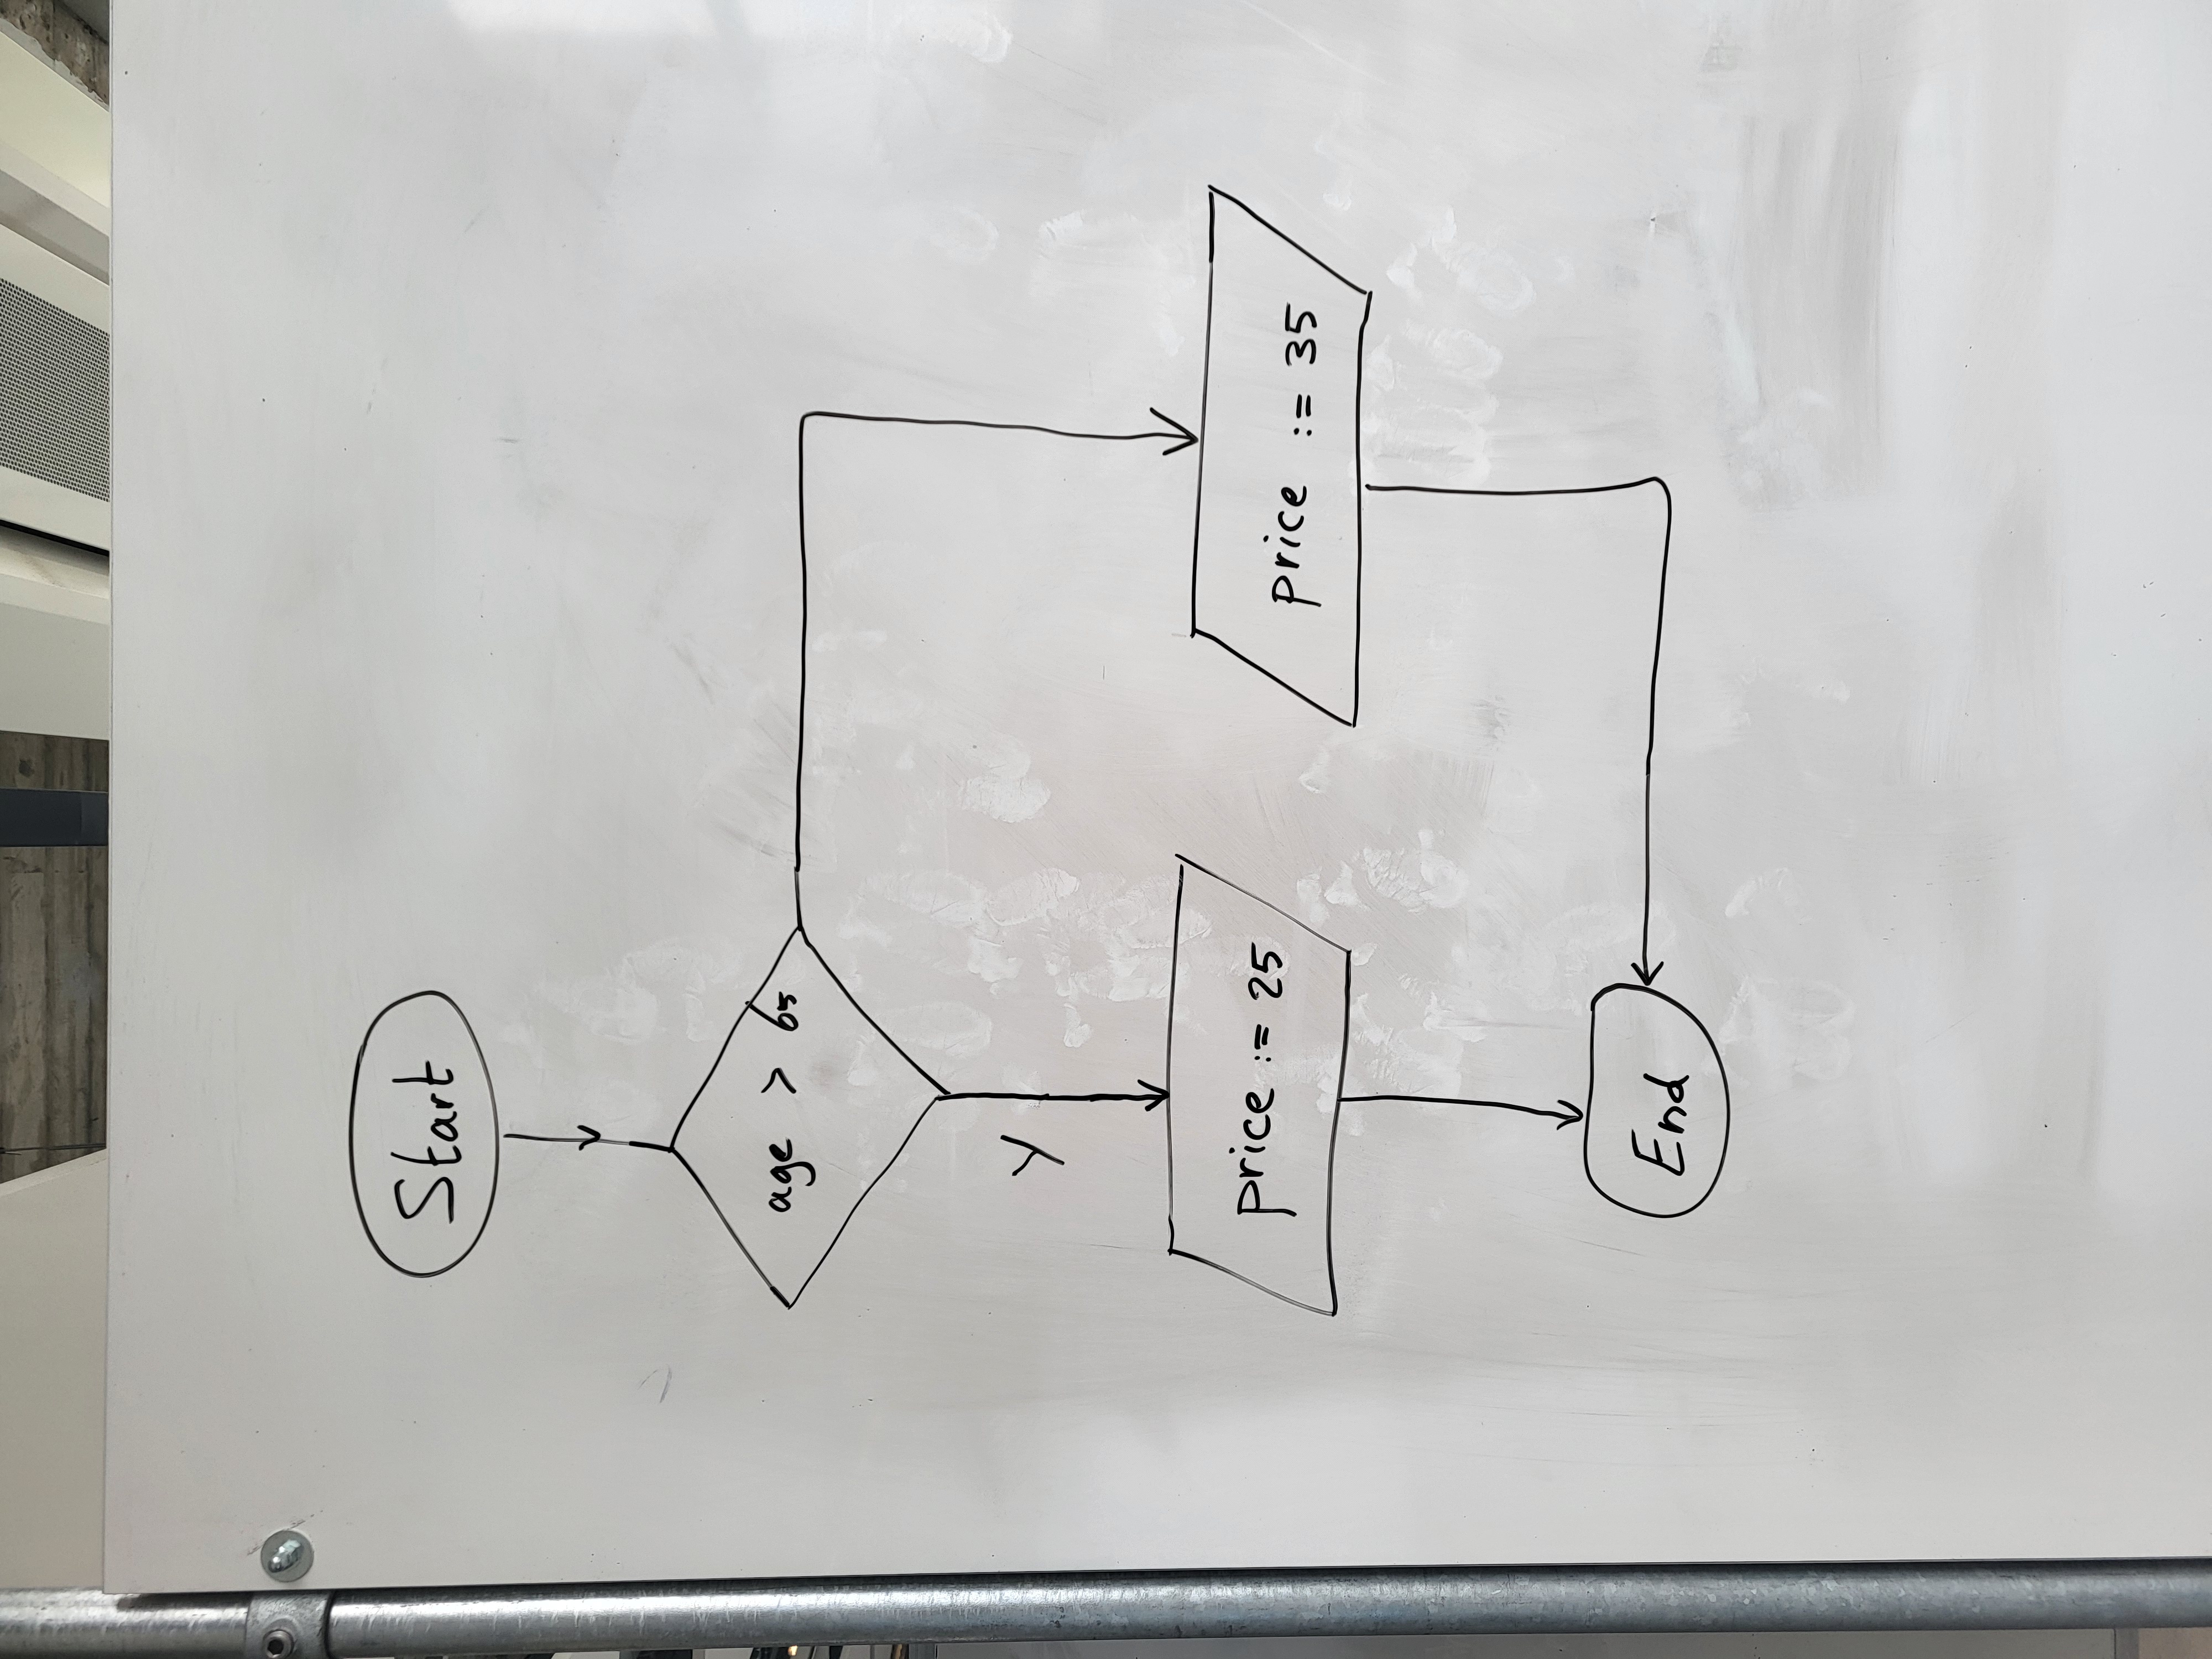 Start
age > 65
Y
price := 25
price := 35
End